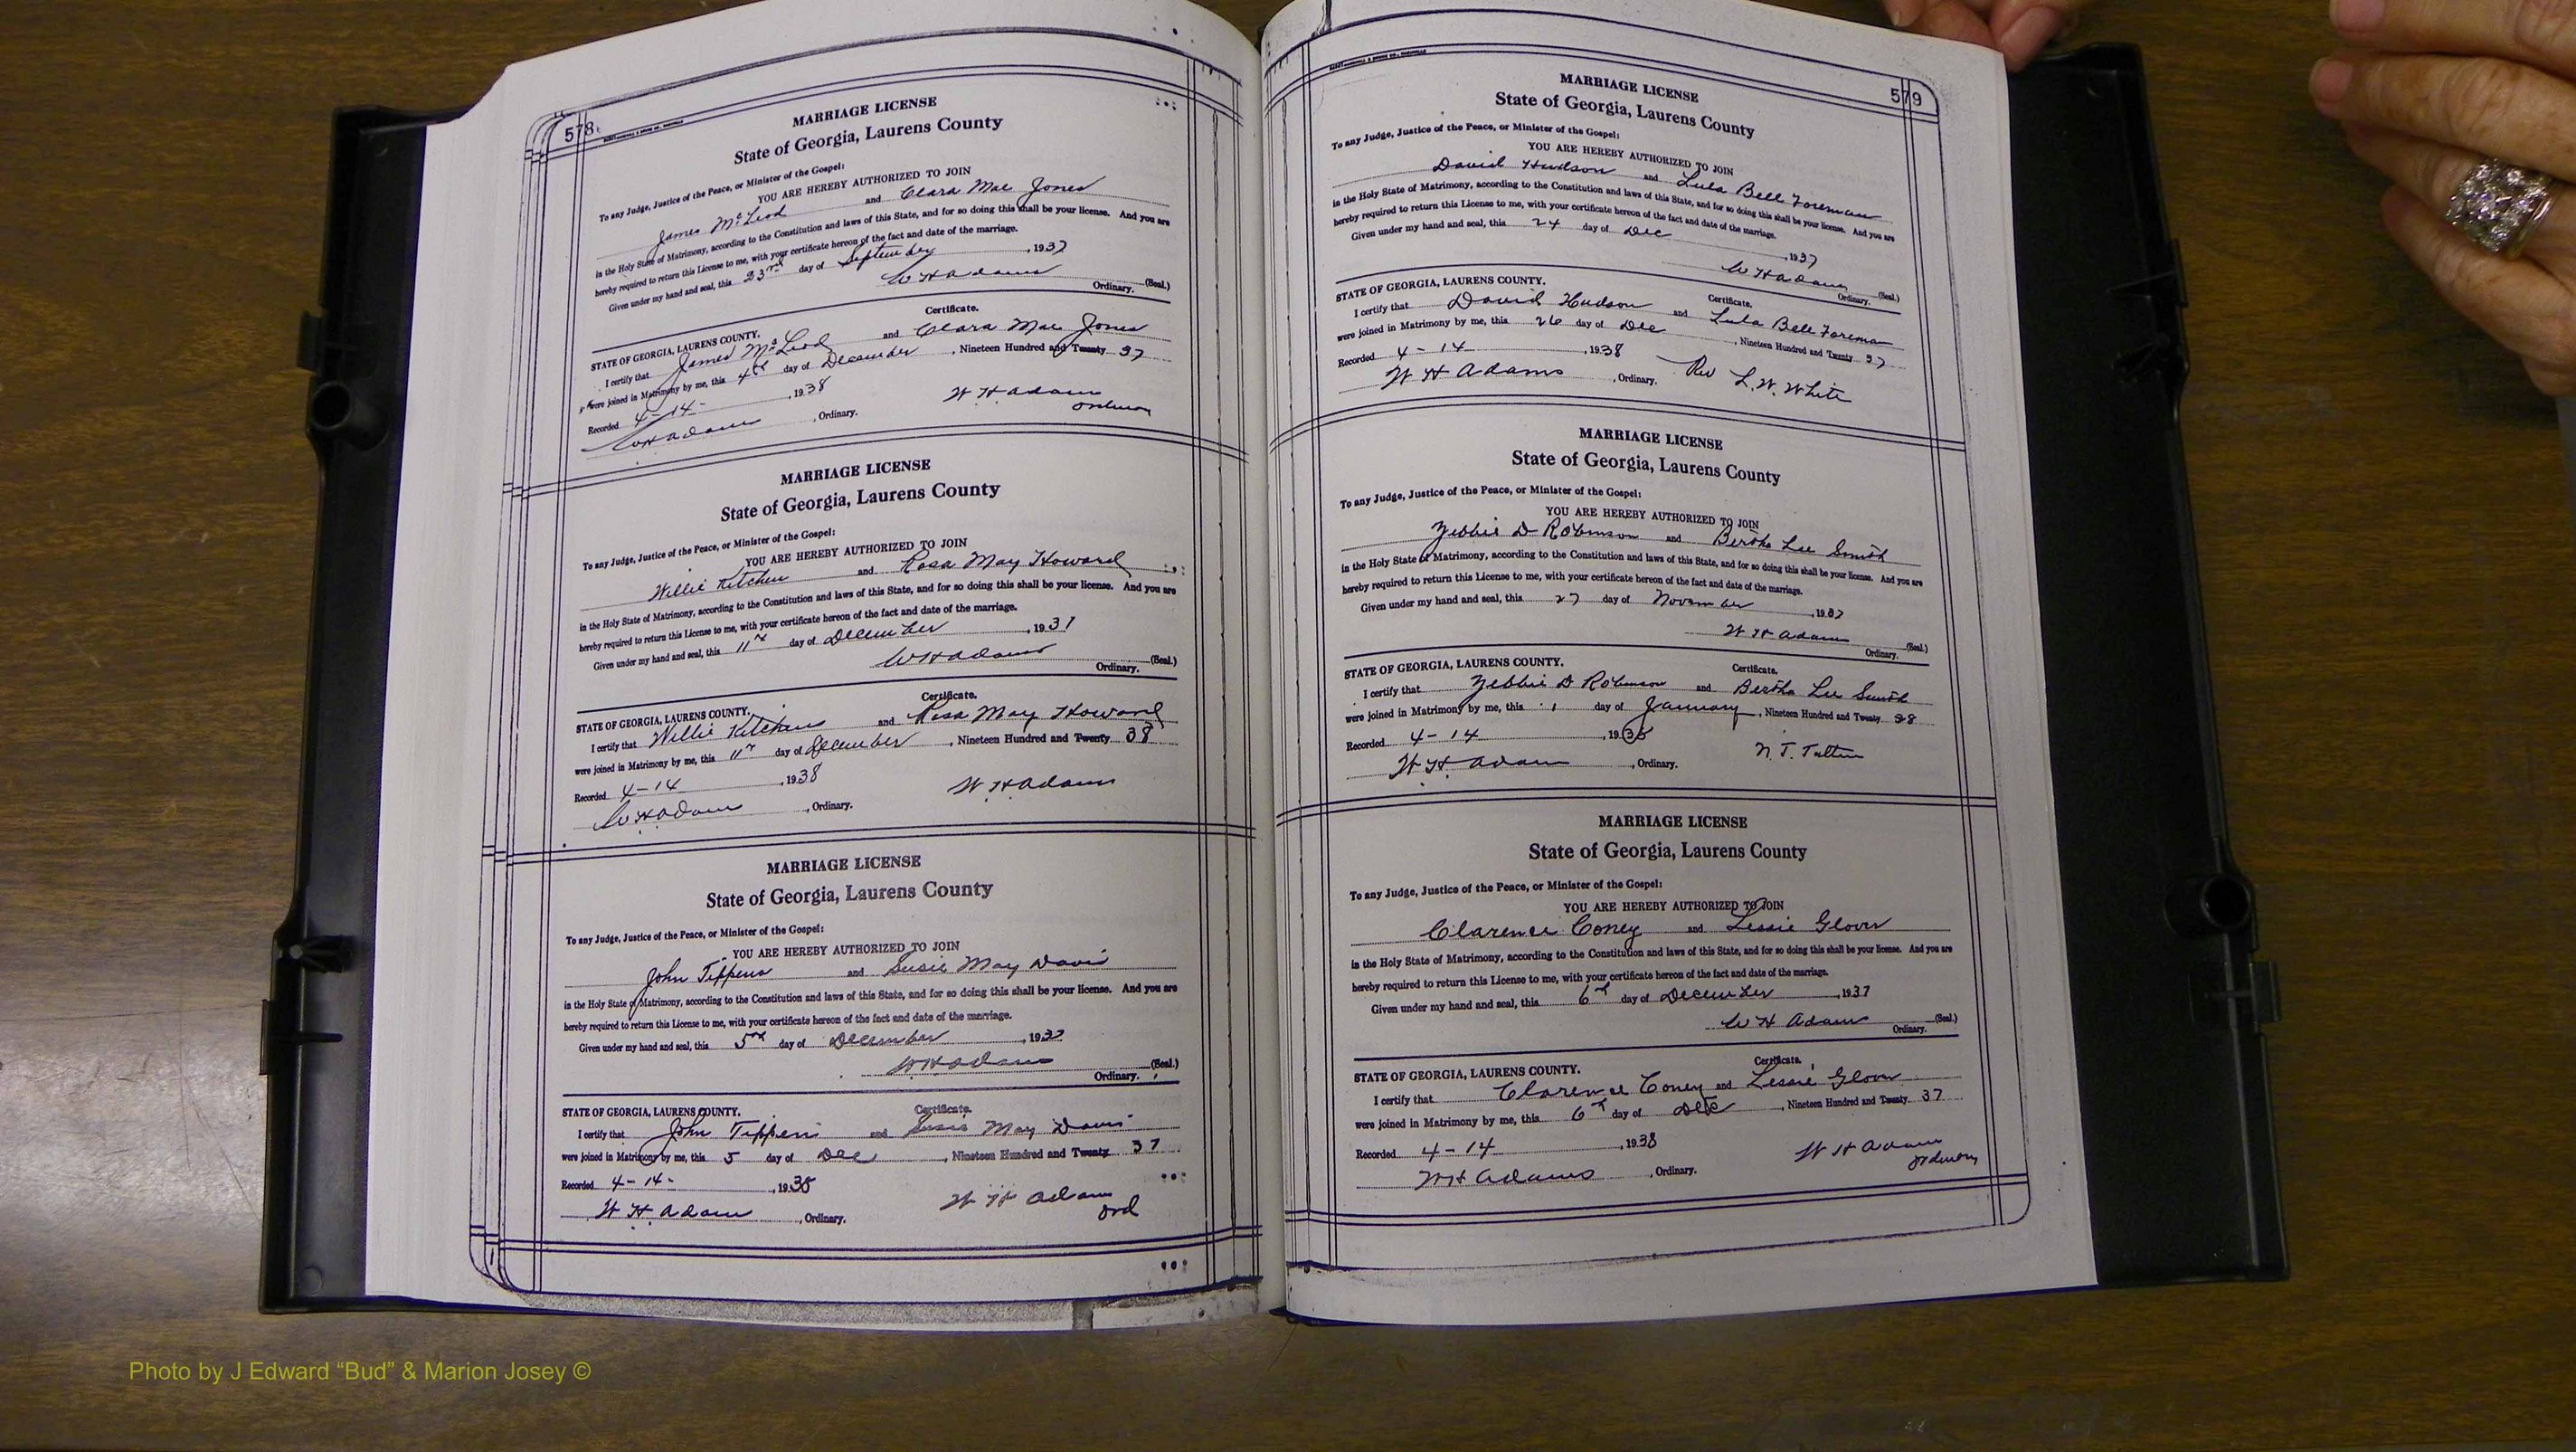 578
MARRIAGE LICENSE
State of Georgia, Laurens County
To any Judge, Justice of the Peace, or Minister of the Gospel:
YOU ARE HEREBY AUTHORIZED TO JOIN
James McLeod and Clara Mae Jones
in the Holy State of Matrimony, according to the Constitution and laws of this State, and for so doing this shall be your license. And you are
hereby required to return this License to me, with your certificate hereon of the fact and date of the marriage.
Given under my hand and seal, this 23rd day of September, 1937
W H Adams (Seal.)
Ordinary.
Certificate.
STATE OF GEORGIA, LAURENS COUNTY.
I certify that James McLeod and Clara Mae Jones
were joined in Matrimony by me, this 4th day of December, Nineteen Hundred and Twenty 37
Recorded 4-14-, 1938
W H Adams, Ordinary. W H Adams
MARRIAGE LICENSE
State of Georgia, Laurens County
To any Judge, Justice of the Peace, or Minister of the Gospel:
YOU ARE HEREBY AUTHORIZED TO JOIN
Willie Kitchen and Rosa May Howard
in the Holy State of Matrimony, according to the Constitution and laws of this State, and for so doing this shall be your license. And you are
hereby required to return this License to me, with your certificate hereon of the fact and date of the marriage.
Given under my hand and seal, this 11th day of December, 1937
W H Adams (Seal.)
Ordinary.
Certificate.
STATE OF GEORGIA, LAURENS COUNTY.
I certify that Willie Kitchens and Rosa May Howard
were joined in Matrimony by me, this 11th day of December, Nineteen Hundred and Twenty 38
Recorded 4-14, 1938
W H Adams, Ordinary. W H Adams
MARRIAGE LICENSE
State of Georgia, Laurens County
To any Judge, Justice of the Peace, or Minister of the Gospel:
YOU ARE HEREBY AUTHORIZED TO JOIN
John Tippens and Susie May Davis
in the Holy State of Matrimony, according to the Constitution and laws of this State, and for so doing this shall be your license. And you are
hereby required to return this License to me, with your certificate hereon of the fact and date of the marriage.
Given under my hand and seal, this 5th day of December, 1937
W H Adams (Seal.)
Ordinary.
Certificate.
STATE OF GEORGIA, LAURENS COUNTY.
I certify that John Tippens and Susie May Davis
were joined in Matrimony by me, this 5 day of Dec, Nineteen Hundred and Twenty 37
Recorded 4-14-, 1938
W H Adams, Ordinary. W H Adams
Ord
579
MARRIAGE LICENSE
State of Georgia, Laurens County
To any Judge, Justice of the Peace, or Minister of the Gospel:
YOU ARE HEREBY AUTHORIZED TO JOIN
David Hudson and Lula Bell Foreman
in the Holy State of Matrimony, according to the Constitution and laws of this State, and for so doing this shall be your license. And you are
hereby required to return this License to me, with your certificate hereon of the fact and date of the marriage.
Given under my hand and seal, this 24 day of Dec, 1937
W H Adams (Seal.)
Ordinary.
Certificate.
STATE OF GEORGIA, LAURENS COUNTY.
I certify that David Hudson and Lula Bell Foreman
were joined in Matrimony by me, this 26 day of Dec, Nineteen Hundred and Twenty 37
Recorded 4-14, 1938
W H Adams, Ordinary. Rev L.W. White
MARRIAGE LICENSE
State of Georgia, Laurens County
To any Judge, Justice of the Peace, or Minister of the Gospel:
YOU ARE HEREBY AUTHORIZED TO JOIN
Zebbie D Robinson and Bertha Lee Smith
in the Holy State of Matrimony, according to the Constitution and laws of this State, and for so doing this shall be your license. And you are
hereby required to return this License to me, with your certificate hereon of the fact and date of the marriage.
Given under my hand and seal, this 27 day of November, 1937
W H Adams (Seal.)
Ordinary.
Certificate.
STATE OF GEORGIA, LAURENS COUNTY.
I certify that Zebbie D Robinson and Bertha Lee Smith
were joined in Matrimony by me, this 1 day of January, Nineteen Hundred and Twenty 38
Recorded 4-14, 1938
W H Adams, Ordinary. N.T.
MARRIAGE LICENSE
State of Georgia, Laurens County
To any Judge, Justice of the Peace, or Minister of the Gospel:
YOU ARE HEREBY AUTHORIZED TO JOIN
Clarence Coney and Lessie Glover
in the Holy State of Matrimony, according to the Constitution and laws of this State, and for so doing this shall be your license. And you are
hereby required to return this License to me, with your certificate hereon of the fact and date of the marriage.
Given under my hand and seal, this 6th day of December, 1937
W H Adams (Seal.)
Ordinary.
Certificate.
STATE OF GEORGIA, LAURENS COUNTY.
I certify that Clarence Coney and Lessie Glover
were joined in Matrimony by me, this 6th day of Dec, Nineteen Hundred and Twenty 37
Recorded 4-14, 1938
W H Adams, Ordinary. W H Adams
Ordinary
Photo by J Edward “Bud” & Marion Josey ©